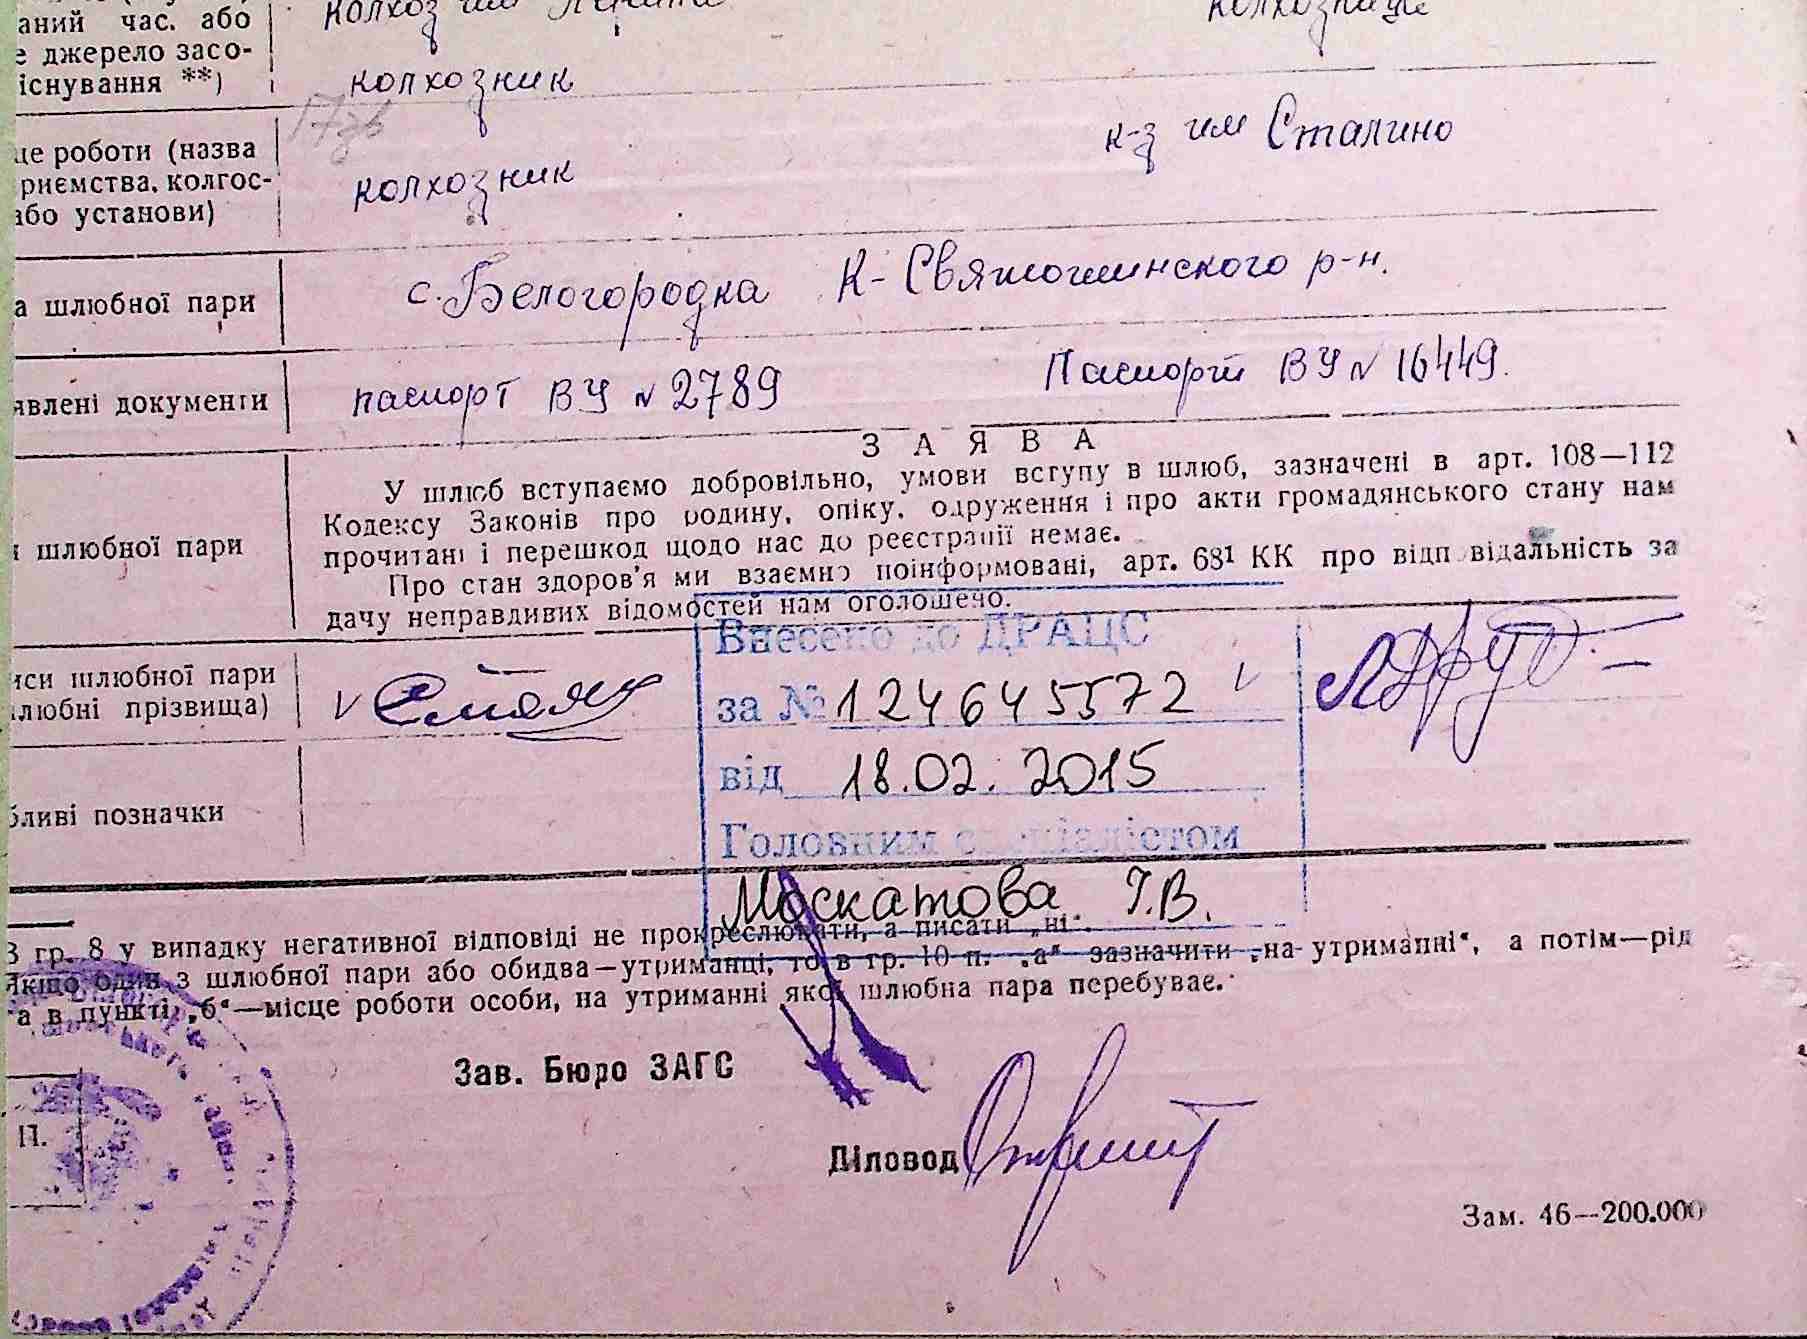 аний час. або
е джерело засо-
існування **)
колхоз им Ленина
колхозник
колхозница
17зв
це роботи (назва
риємства, колгос-
або установи)
колхозник
к-з им Сталино
а шлюбної пари
с. Белогородка К-Святошинского р-н.
явлені документи
паспорт ВУ № 2789
Паспорт ВУ № 16449.
ЗАЯВА
и шлюбної пари
У шлюб вступаємо добровільно, умови вступу в шлюб, зазначені в арт. 108—112
Кодексу Законів про родину, опіку, одруження і про акти громадянського стану нам
прочитані і перешкод щодо нас до реєстрації немає.
Про стан здоров'я ми взаємно поінформовані, арт. 68¹ КК про відповідальність за
дачу неправдивих відомостей нам оголошено.
иси шлюбної пари
любні прізвища)
Внесено до ДРАЦС
за № 124645572
від 18.02.2015
Головним спеціалістом
Москатова І.В.
бливі позначки
В гр. 8 у випадку негативної відповіді не прокреслювати, а писати „ні".
Якщо один з шлюбної пари або обидва—утриманці, то в гр. 10 п. „а" зазначити „на утриманні", а потім—рід
а в пункті „б"—місце роботи особи, на утриманні якої шлюбна пара перебуває.
Зав. Бюро ЗАГС
П.
Діловод
Зам. 46—200.000